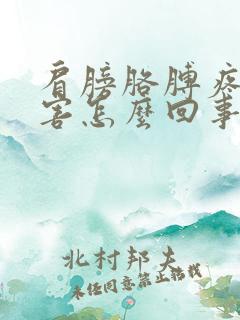 肩膀胳膊疼
害怎麼回事
北村邦夫
未经同意禁止转载